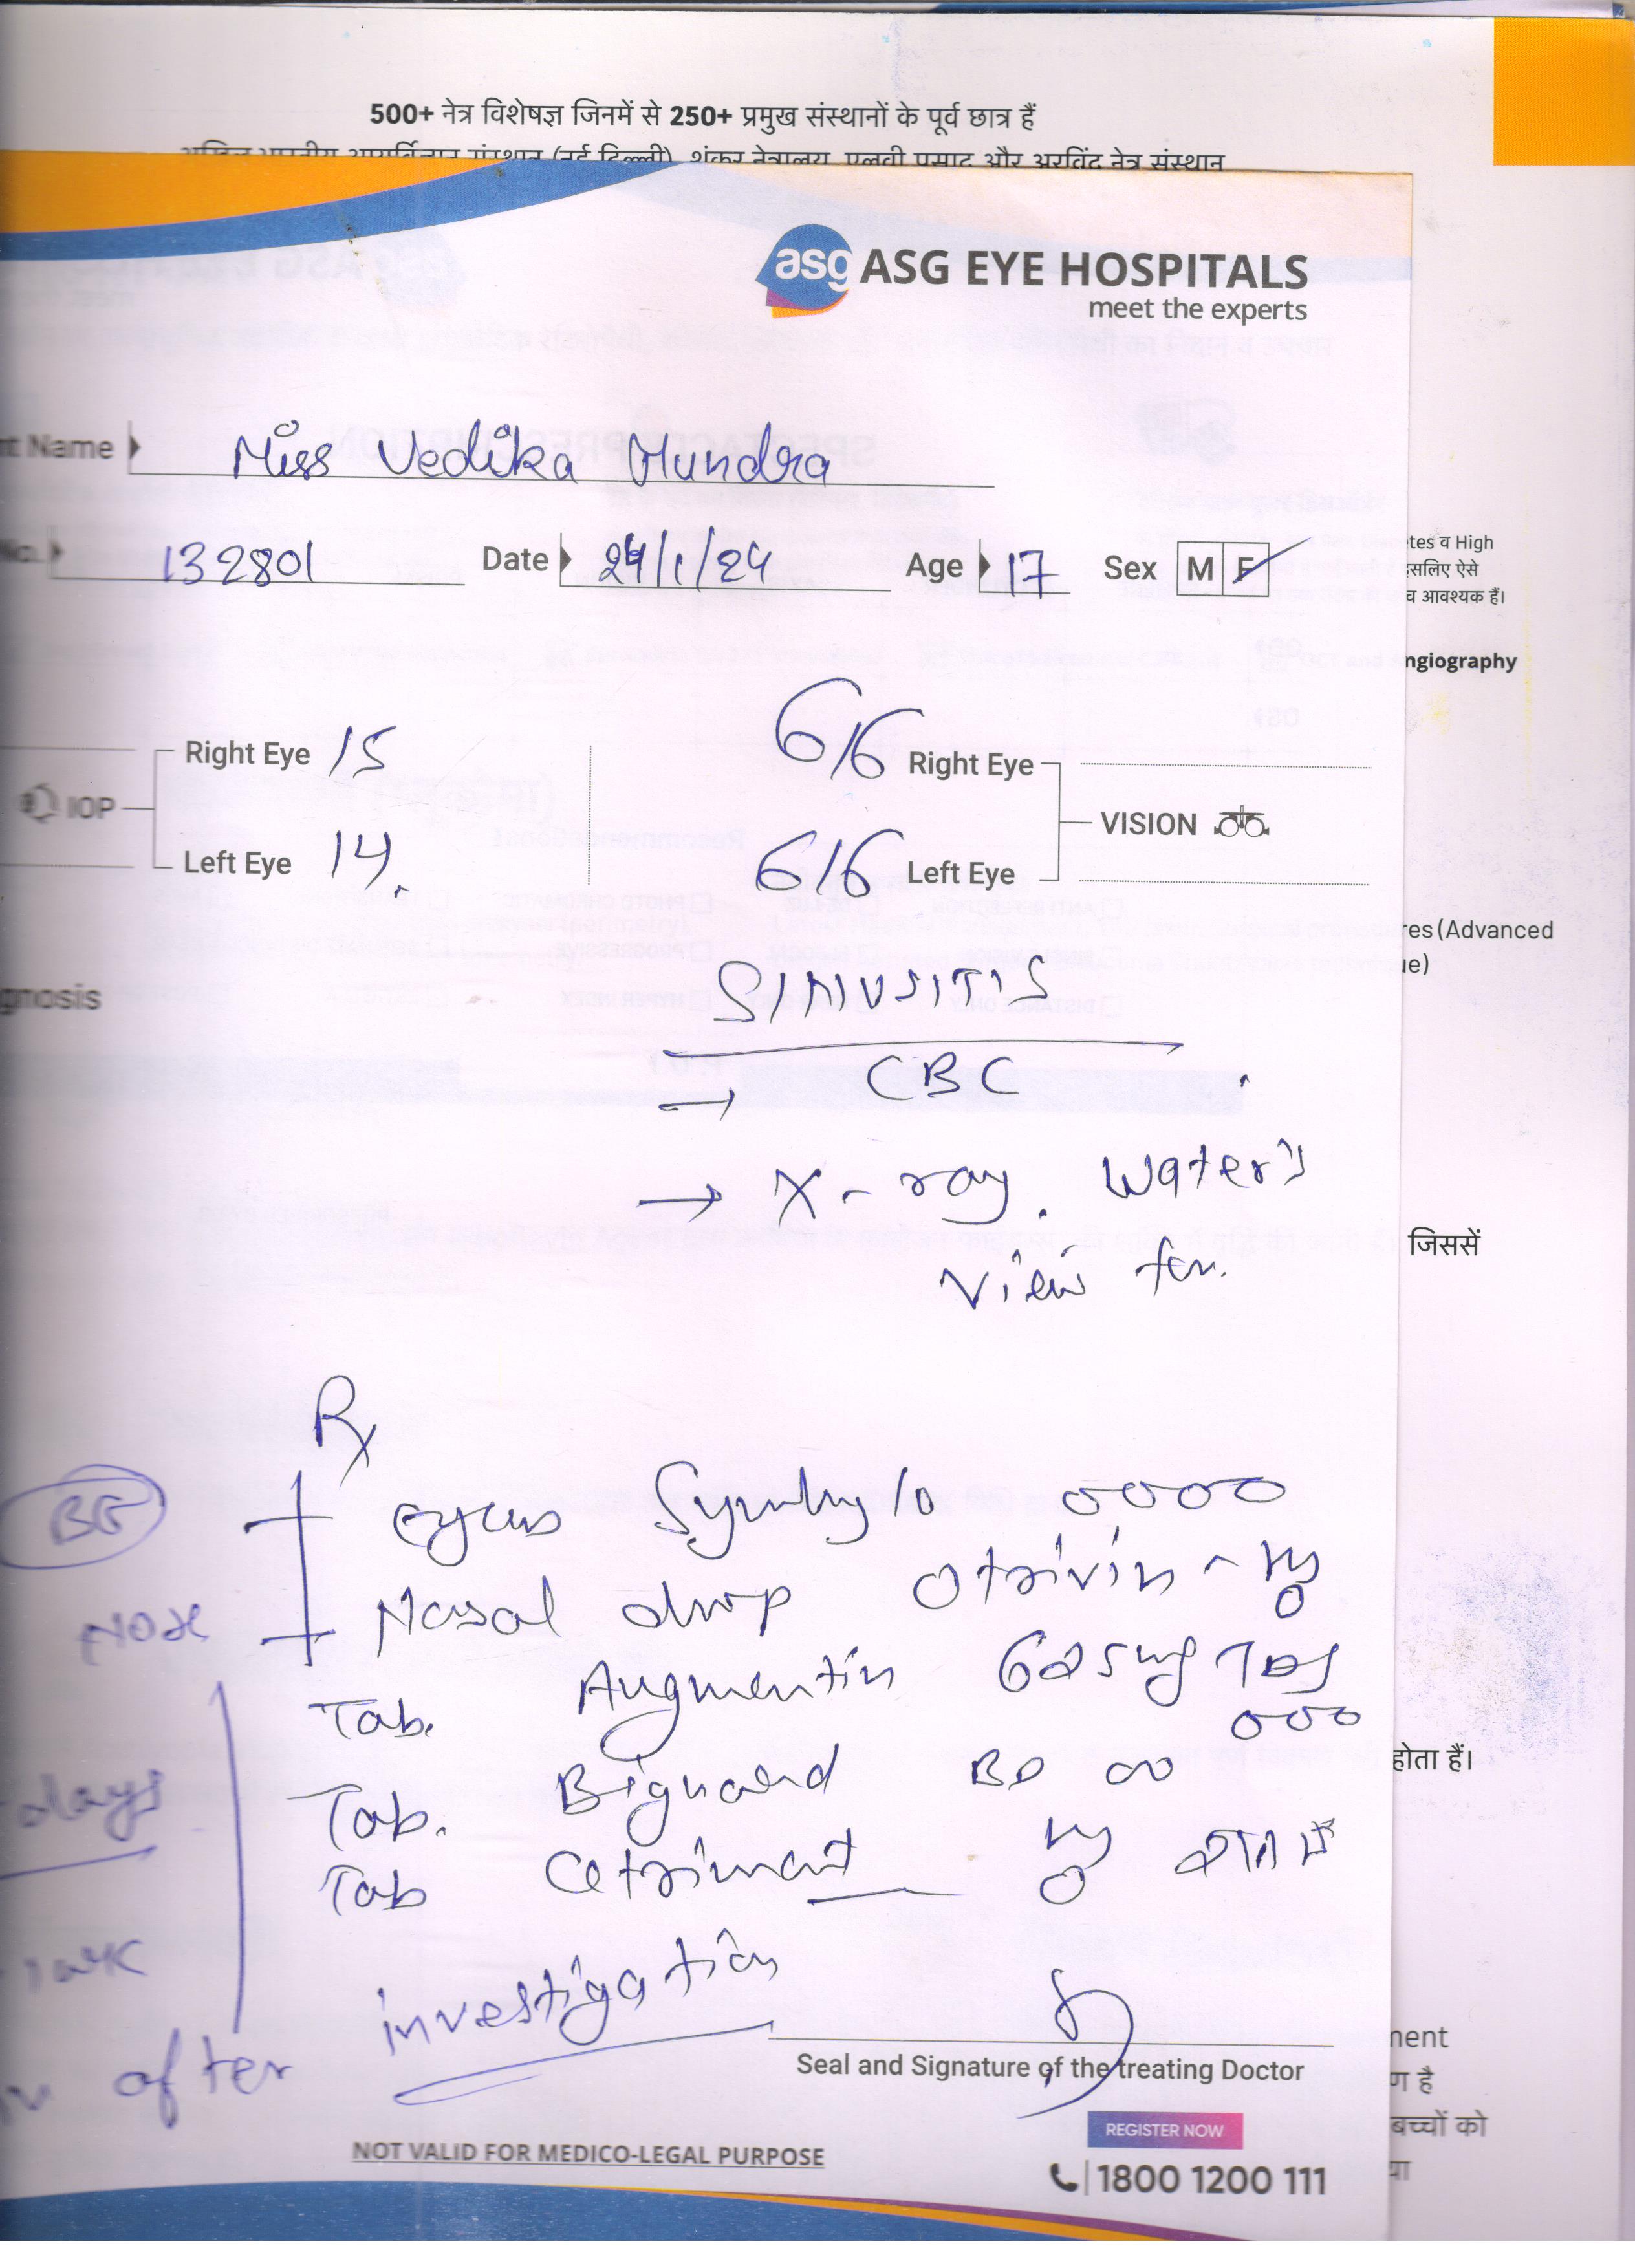 500+ नेत्र विशेषज्ञ जिनमें से 250+ प्रमुख संस्थानों के पूर्व छात्र हैं
अखिल भारतीय आयुर्विज्ञान संस्थान (नई दिल्ली), शंकर नेत्रालय, एलवी प्रसाद और अरविंद नेत्र संस्थान
asg ASG EYE HOSPITALS
meet the experts
nt Name Miss Vedika Mundra
No. 132801 Date 24/1/24 Age 17 Sex M F
tes व High
सलिए ऐसे
व आवश्यक हैं।
ngiography
Right Eye 15 6/6 Right Eye
IOP VISION
Left Eye 14. 6/6 Left Eye
res (Advanced
ue)
gnosis
SINUSITIS
→ CBC
→ X-ray. Water's
View
जिससें
Rx
BE
0000
Nose Nasal drop Otrivin -
Tab. Augmentin 625mg TDS
000
होता हैं।
Tab. BD 00
days
Tab
after investigation
Seal and Signature of the treating Doctor
ment
ण है
बच्चों को
या
REGISTER NOW
NOT VALID FOR MEDICO-LEGAL PURPOSE
1800 1200 111